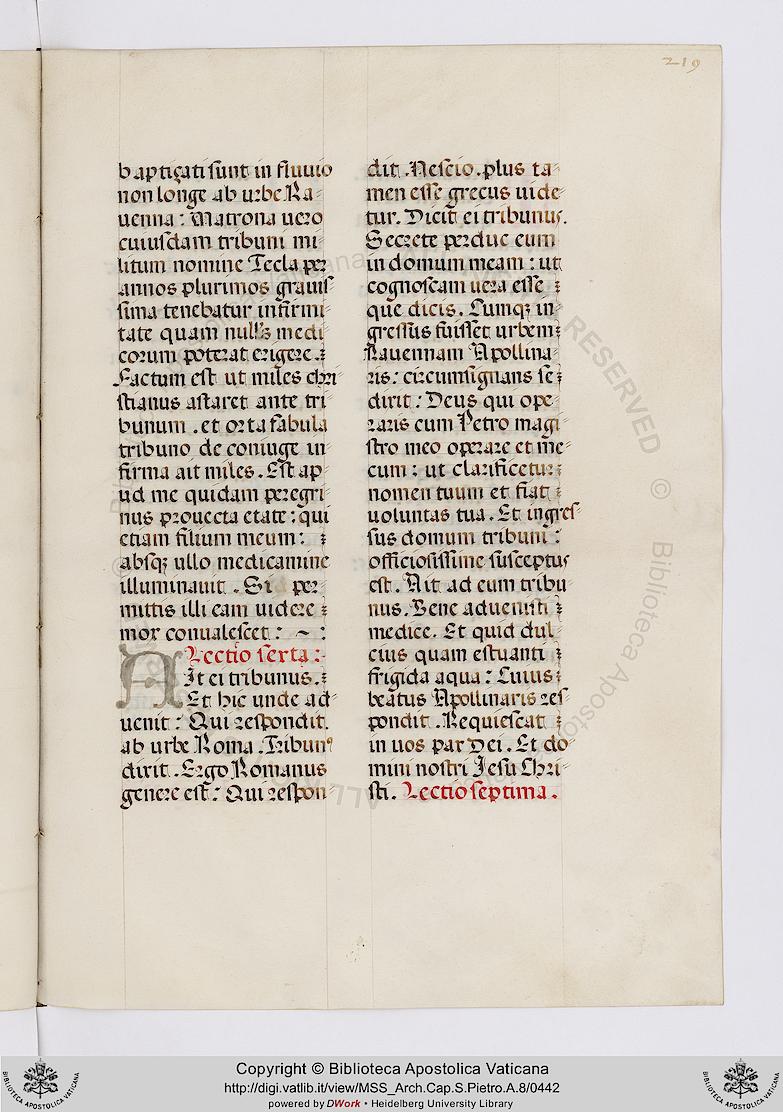 219
baptiçati sunt in fluuio
non longe ab urbe Ra-
uenna: Matrona uero
cuiusdam tribuni mi-
litum nomine Tecla per
annos plurimos grauis-
sima tenebatur infirmi-
tate quam nullꝰ medi
corum poterat erigere.
Factum est ut miles chri
stianus astaret ante tri
bunum. et orta fabula
tribuno de coniuge in-
firma ait miles. Est ap-
ud me quidam peregri-
nus prouecta etate: qui
etiam filium meum:
absqꝫ ullo medicamine
illuminauit. Si per-
mittis illi eam uidere
mox conualescet: ~ :
Lectio sexta:
AIt ei tribunus.
Et hic unde ad-
uenit: Qui respondit.
ab urbe Roma. Tribunꝰ
dixit. Ergo Romanus
genere est: Qui respon-
dit. Nescio. plus ta-
men esse grecus uide-
tur. Dicit ei tribunus.
Secrete perduc eum
in domum meam: ut
cognoscam uera esse
que dicis. Cumqꝫ in-
gressus fuisset urbem
Rauennam Apollina-
ris: circumsignans se
dixit: Deus qui ope-
raris cum Petro magi-
stro meo operare et me-
cum: ut clarificetur
nomen tuum et fiat
uoluntas tua. Et ingres-
sus domum tribuni:
officiosissime susceptus
est. Ait ad eum tribu-
nus. Bene aduenisti
medice. Et quid dul-
cius quam estuanti
frigida aqua: Cuius
beatus Apollinaris res-
pondit. Requiescat
in uos pax Dei. Et do-
mini nostri Jesu Chri-
sti. Lectio septima.
Copyright © Biblioteca Apostolica Vaticana
http://digi.vatlib.it/view/MSS_Arch.Cap.S.Pietro.A.8/0442
powered by DWork • Heidelberg University Library